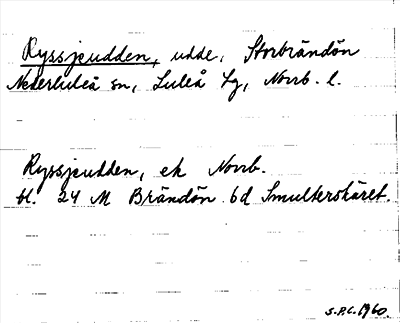 Ryssjeudden, udde, Storbrändön
Nederluleå sn, Luleå tg, Norrb. l.
Ryssjeudden, ek Norrb.
bl. 24 M Brändön 6d Smulterskäret.
S.P.C. 1960.